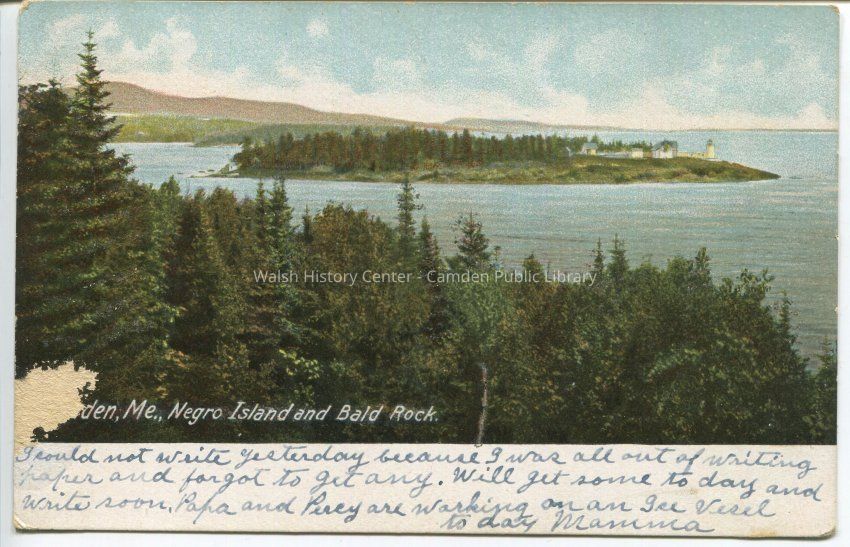 Walsh History Center - Camden Public Library
den, Me., Negro Island and Bald Rock.
I could not write yesterday because I was all out of writing
paper and forgot to get any. Will get some to day and
write soon. Papa and Percy are working on an Ice Vesel
to day Mamma